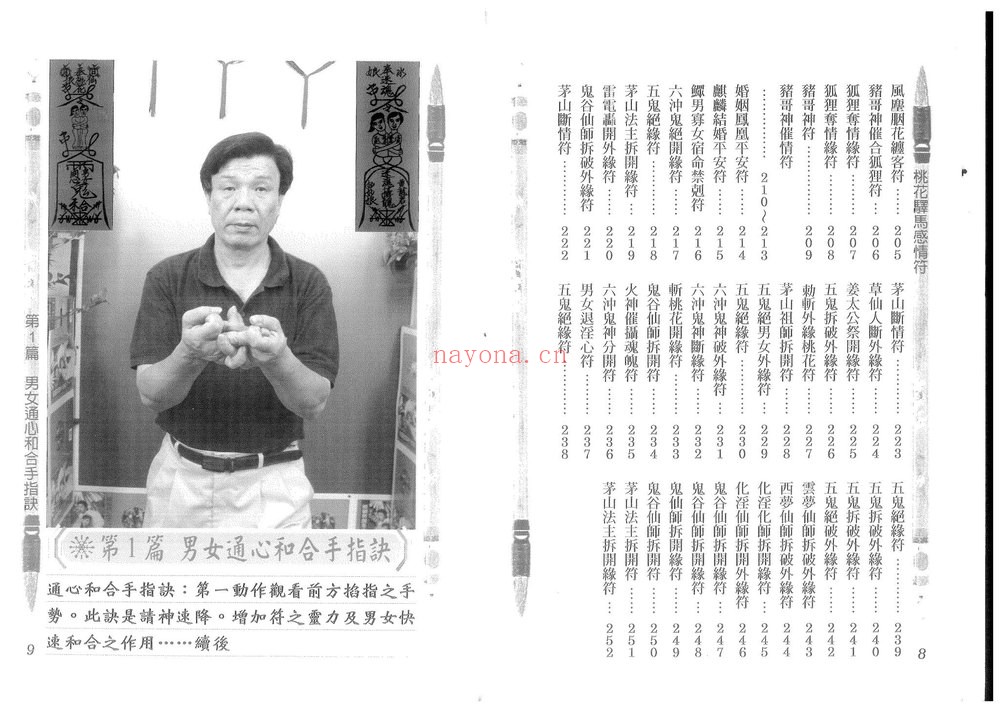 桃花驛馬感情符
風塵胭花纏客符……205
豬哥神催合狐狸符…206
狐狸奪情緣符………207
狐狸奪情緣符………208
豬哥神符……………209
豬哥神催情符
………………210~213
婚姻鳳凰平安符……214
麒麟結婚平安符……215
鰥男寡女宿命禁剋符 216
六沖鬼絕開緣符……217
五鬼絕緣符…………218
茅山法主拆開緣符…219
雷電轟開外緣符……220
鬼谷仙師拆破外緣符 221
茅山斷情符…………222
茅山斷情符…………223
草仙人斷外緣符……224
姜太公祭開緣符……225
五鬼拆破外緣符……226
勅斬外緣桃花符……227
茅山祖師拆開符……228
五鬼絕男女外緣符…229
五鬼絕緣符…………230
六沖鬼神破外緣符…231
六沖鬼神斷緣符……232
斬桃花開緣符………233
鬼谷仙師拆開符……234
火神催攝魂魄符……235
六沖鬼神分開符……236
男女退淫心符………237
五鬼絕緣符…………238
五鬼絕緣符…………239
五鬼拆破外緣符……240
五鬼拆破外緣符……241
五鬼絕破外緣符……242
雲夢仙師拆開緣符…243
西夢仙師拆破外緣符 244
化淫化師拆開緣符…245
化淫仙師拆開外緣符 246
鬼谷仙師拆開外緣符 247
鬼谷仙師拆開緣符…248
鬼仙師拆開緣符……249
鬼谷仙師拆開符……250
茅山法主拆開符……251
茅山法主拆開緣符…252
8
第1篇 男女通心和合手指訣
第1篇 男女通心和合手指訣
通心和合手指訣：第一動作觀看前方掐指之手
勢。此訣是請神速降。增加符之靈力及男女快
速和合之作用……續後
9
nayona.cn